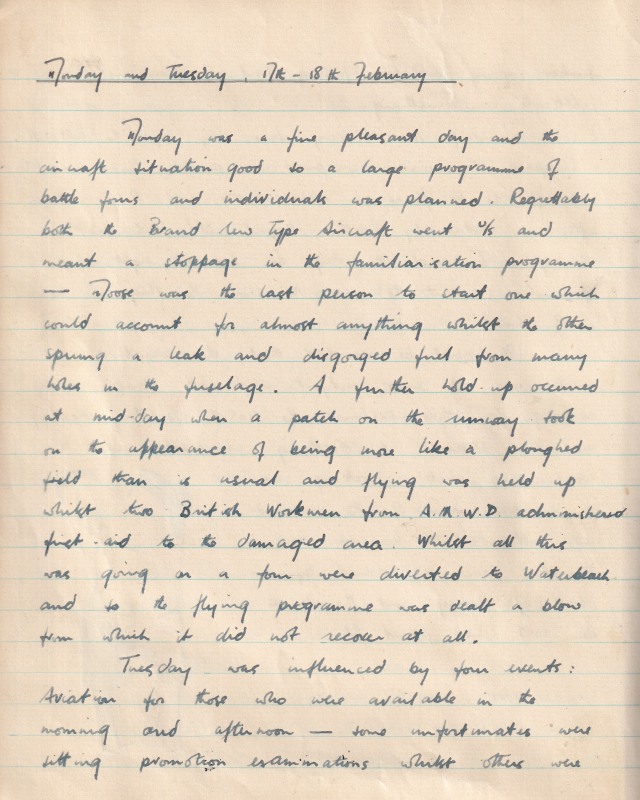 Monday and Tuesday, 17th - 18th February
Monday was a fine pleasant day and the
aircraft situation good so a large programme of
battle fours and individuals was planned. Regrettably
both the Brand New Type Aircraft went u/s and
meant a stoppage in the familiarisation programme
— Moose was the last person to start one which
could account for almost anything whilst the other
sprung a leak and disgorged fuel from many
holes in the fuselage. A further hold-up occurred
at mid-day when a patch on the runway took
on the appearance of being more like a ploughed
field than is usual and flying was held up
whilst two British Workmen from A.M.W.D. administered
first-aid to the damaged area. Whilst all this
was going on a four were diverted to Waterbeach
and so the flying programme was dealt a blow
from which it did not recover at all.
Tuesday was influenced by four events:
Aviation for those who were available in the
morning and afternoon — some unfortunates were
sitting promotion examinations whilst others were